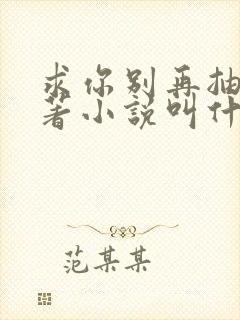 求你别再抽
著小説叫什
范某某